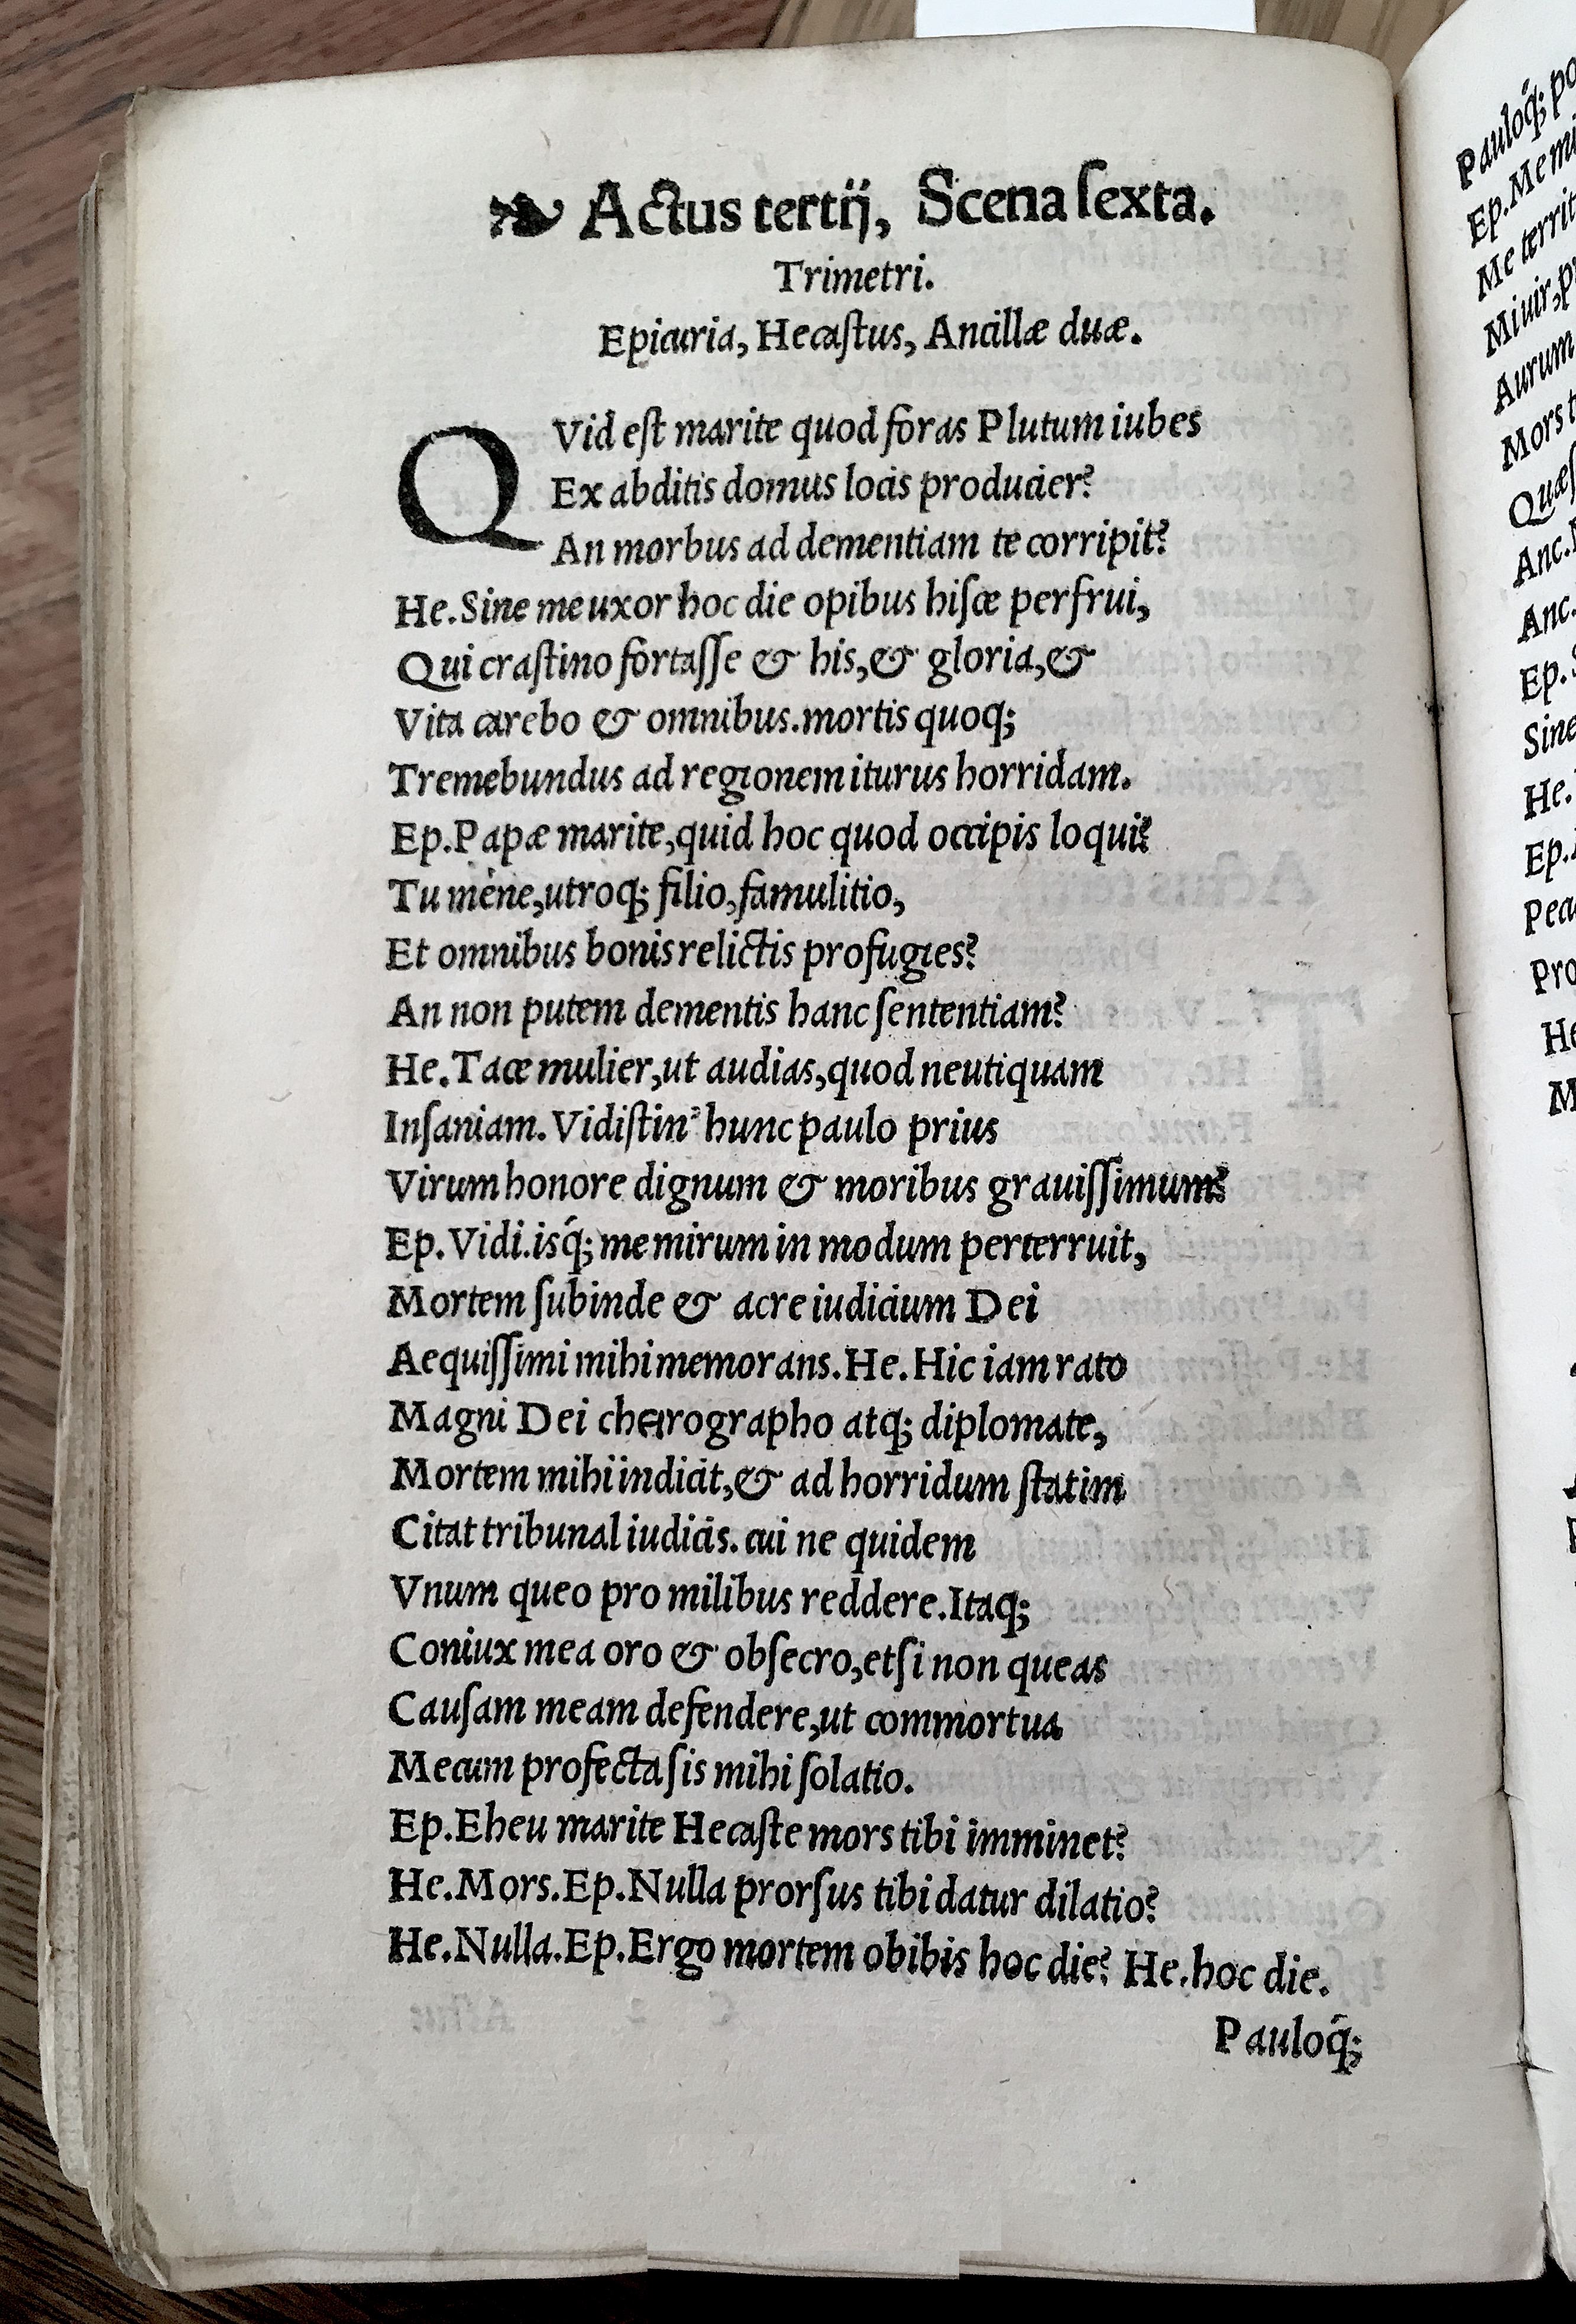 ❧ Actus tertij, Scena ſexta.
Trimetri.
Epicuria, Hecaſtus, Ancillæ duæ.
QVid eſt marite quod foras Plutum iubes
Ex abditis domus locis producier?
An morbus ad dementiam te corripit?
He.Sine me uxor hoc die opibus hiſce perfrui,
Qui craſtino fortaſſe & his,& gloria,&
Vita carebo & omnibus.mortis quoq;
Tremebundus ad regionem iturus horridam.
Ep.Papæ marite,quid hoc quod occipis loqui?
Tu méne,utroq; filio,famulitio,
Et omnibus bonis relictis profugies?
An non putem dementis hanc ſententiam?
He.Tace mulier,ut audias,quod neutiquam
Inſaniam.Vidiſtin' hunc paulo prius
Virum honore dignum & moribus grauiſſimum?
Ep.Vidi.isq́; me mirum in modum perterruit,
Mortem ſubinde & acre iudicium Dei
Aequiſſimi mihi memorans.He.Hic iam rato
Magni Dei cheirographo atq; diplomate,
Mortem mihi indicit,& ad horridum ſtatim
Citat tribunal iudicis.cui ne quidem
Vnum queo pro milibus reddere.Itaq;
Coniux mea oro & obſecro,etſi non queas
Cauſam meam defendere,ut commortua
Mecum profecta ſis mihi ſolatio.
Ep.Eheu marite Hecaſte mors tibi imminet?
He.Mors.Ep.Nulla prorſus tibi datur dilatio?
He.Nulla.Ep.Ergo mortem obibis hoc die? He.hoc die.
Pauloq́;
Pauloq́; po
Ep.Me mi
Me territ
Mi uir,pr
Aurum
Mors t
Quæſ
Anc.
Anc.
Ep.S
Sine
He.
Ep.
Pea
Pro
He
M